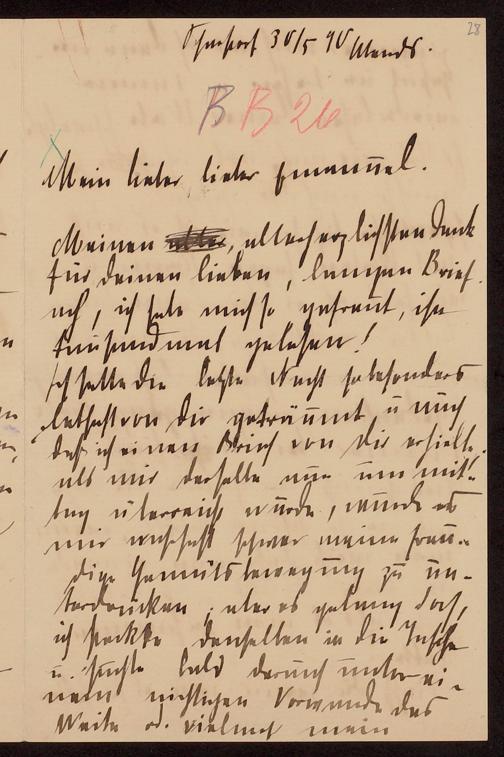 28
30/5 90 Abends.
B B 26
Mein lieber, lieber Emanuel.
Meinen, allerherzlichsten Dank
für deinen lieben, langen Brief.
ach, ich habe mich so gefreut, ihn
tausendmal gelesen!
Ich hatte die letzte Nacht so besonders
lebhaft von dir geträumt u auch
daß ich einen Brief von dir erhielte.
als mir derselbe nun um mit-
tag überreicht wurde, wurde es
mir wahrhaft schwer meine freu-
dige Gemütsbewegung zu un-
terdrücken, aber es gelang doch,
ich steckte denselben in die Tasche
u. suchte bald darauf unter ei-
nem nichtigen Vorwande das
Weite od. vielmehr mein